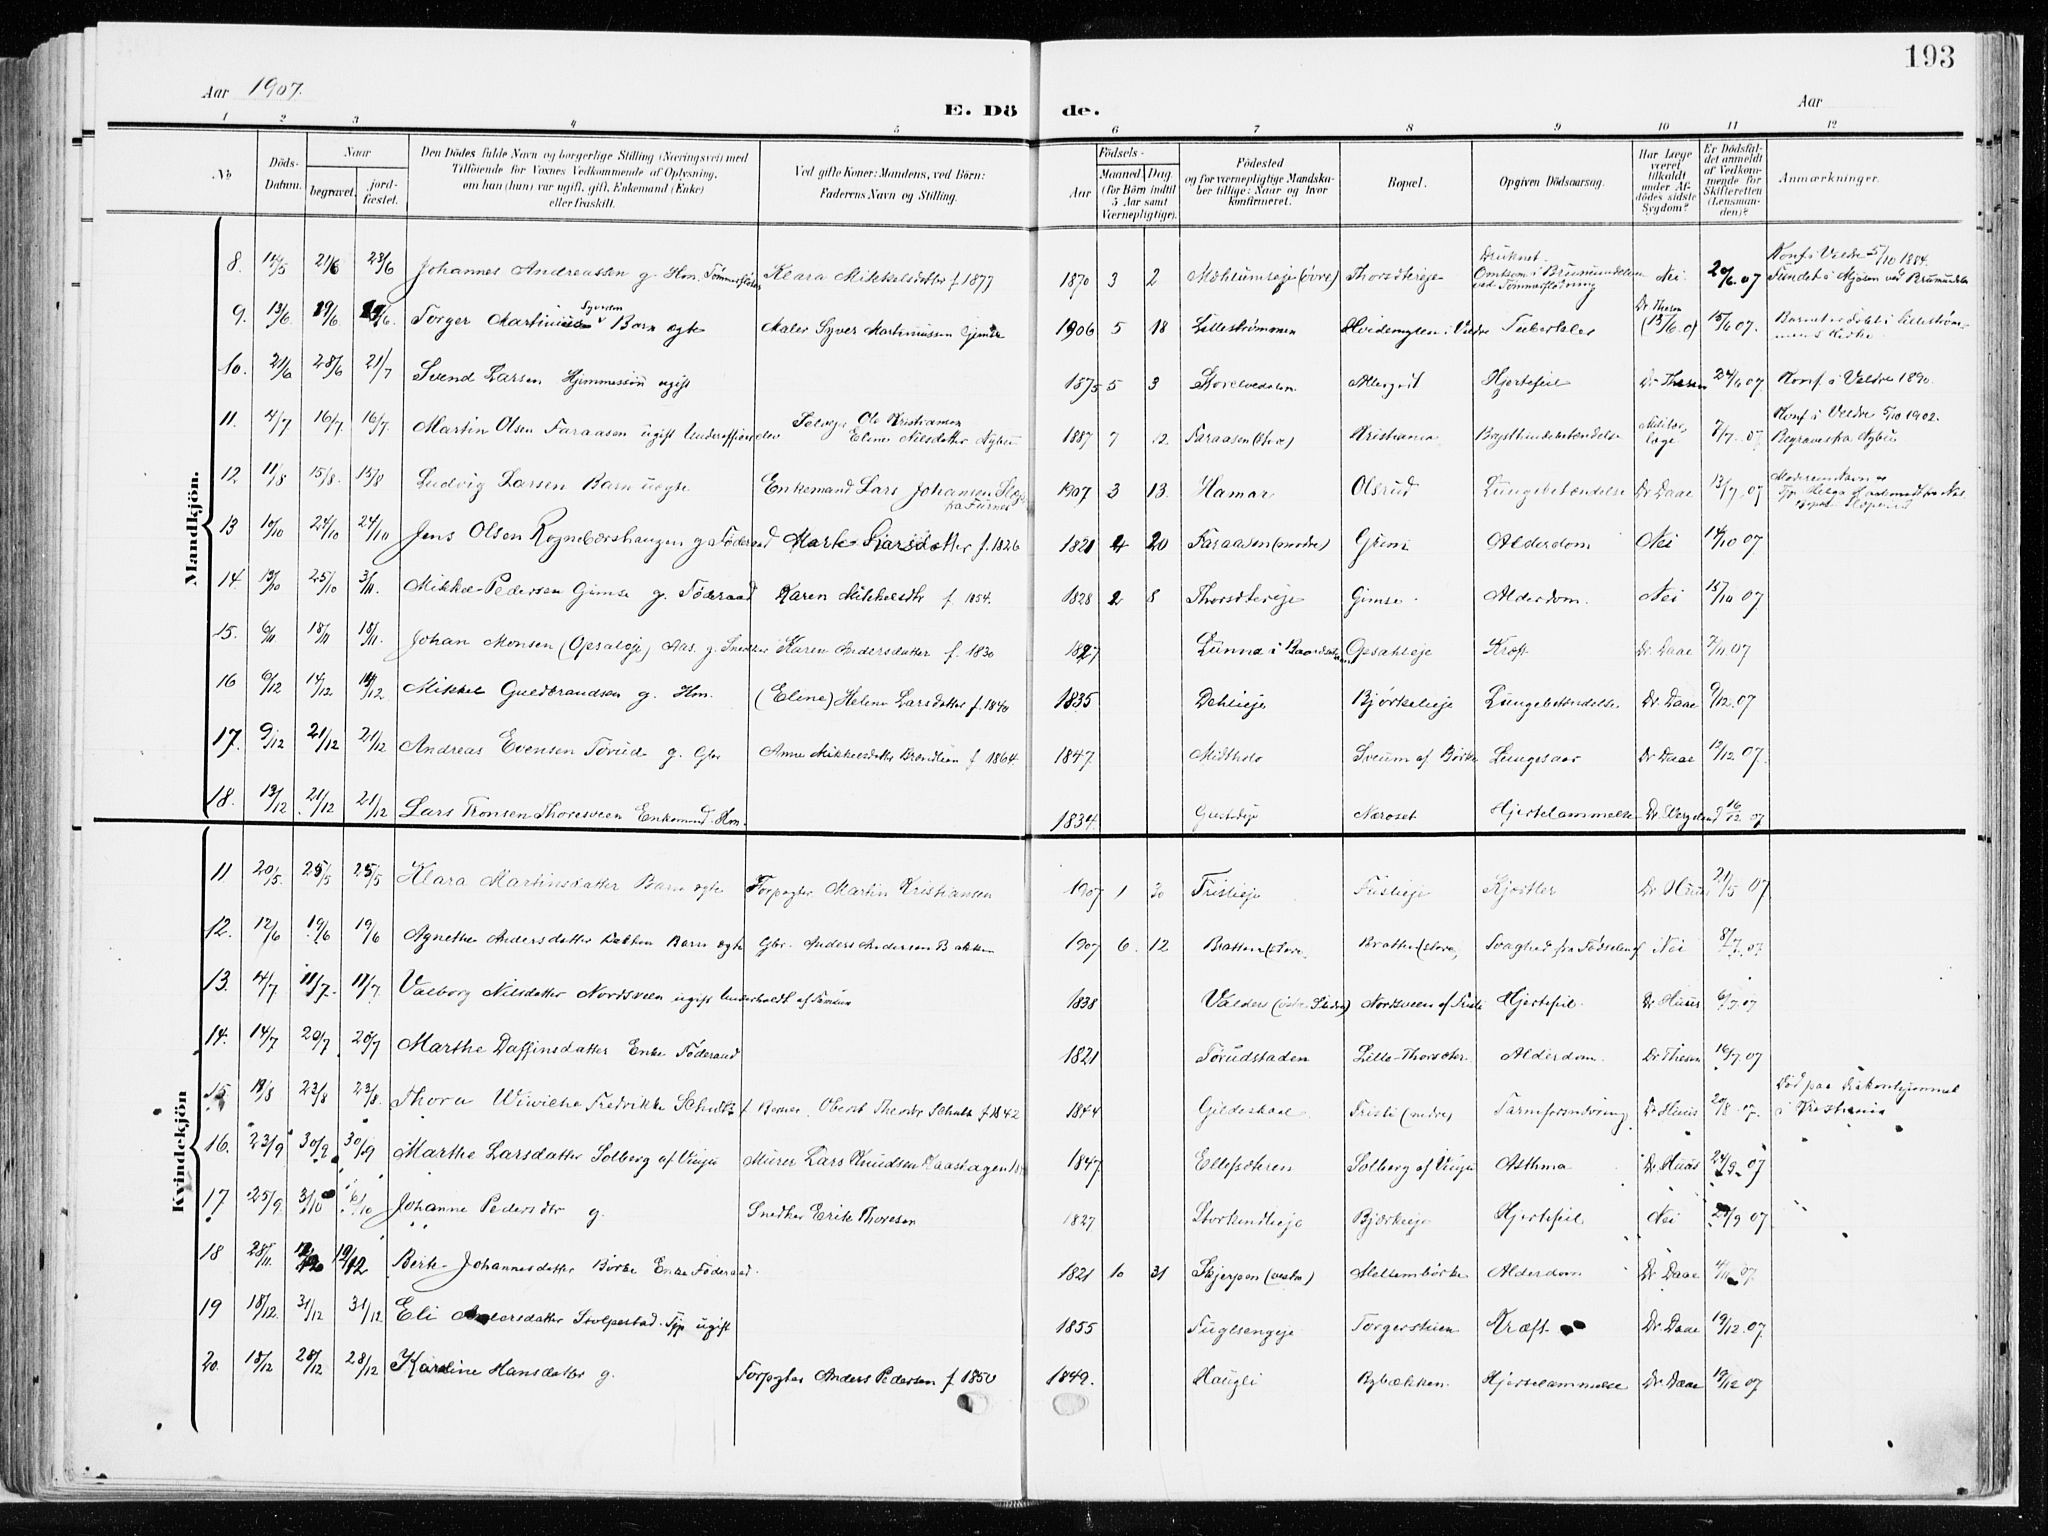 193
Aar 1907.
Aar
E. Dö de.
1 2 3 4 5 6 7 8 9 10 11 12
No
Döds-Datum.
Naar
begravet.
jord-fæstet.
Den Dödes fulde Navn og borgerlige Stilling (Næringsvei) med
Tilföiende for Voxnes Vedkommende af Oplysning,
om han (hun) var ugift, gift, Enkemand (Enke)
eller fraskilt.
Ved gifte Koner: Mandens, ved Börn:
Faderens Navn og Stilling.
Födsels-
Aar
Maaned Dag.
(for Börn indtil
5 Aar samt
Værnepligtige).
Födested
og for værnepligtige Mandska-
ber tillige: Naar og hvor
konfirmeret.
Bopæl.
Opgiven Dödsaarsag.
Har Læge
været
tilkaldt
under Af-
dödes sidste
Sygdom?
Er Dödsfal-
det anmeldt
af Vedkom-
mende for
Skifteretten
(Lensman-
den)?
Anmærkninger.
Mandkjön.
8. 14/5 21/6 23/6 Johannes Andreassen g. Hm. Tømmerfløder Klara Mikkelsdatter f 1877 1870 3 2 Mæhlumseje (övre) Thorsætereje Druknet. Nei 20/6.07 Konf i Veldre 5/10 1884. Fundet i Mjøsen ved Brumundelven
9. 13/6 19/6 19/6. Torger Martinius Syversen Barn ægte Maler Syver Martinussen Gjemse 1906 5 18 Lillestrømmen Hvidemyren i Veldre Tuberkler Dr Thesen (13/6.07) 15/6 07. Barnet er döbt i Lillestrøm-
mens Kirke.
10. 21/6 28/6 21/7 Svend Larsen ugift 1875 5 3 Storelvedalen Hjertefeil Dr Thesen 24/6 07 Konf. i Veldre 1890.
11. 4/7 16/7 16/7. Martin Olsen Faraasen ugift Underofficerselev Ole Kristiansen Eline Nilsdatter Nybu 1887 7 12 Faraasen (store) Kristiania Brysthindebetændelse Militær-læge 7/7. 07. Konf i Veldre 5/10 1902. Begraves fra Nybu
12 11/8 15/8. 15/8 Ludvig Larsen Barn uægte Enkemand Lars Johansen fra Furnes 1907 3 13. Hamar Olsrud Lungebetændelse Dr Daae 13/7 07 Moderens Navn er
13 10/10 24/10 24/10 Jens Olsen Rognebærshaugen g. Föderaad Marte Larsdatter f. 1826 1821 4 20 Faraasen (nedre) Grini Alderdom Nei 14/10 07
14. 13/10 25/10 3/11. Mikkel Pedersen Gimse g. Föderaad Karen Mikkelsdtr f. 1854. 1828 2 8 Thorsætereje Gimse. Alderdom. Nei 15/10 07
15. 6/11 18/11 18/11. Johan Monsen (Opsaleje) Aas. g. Snedker Karen Andersdatter f. 1830 1827 Lunna i Opsahleje Kræft Dr. Daae 7/11 07
16 6/12 14/12 14/12 Mikkel Guldbrandsen g. Hm. (Eline) Helene Larsdatter f. 1840 1835 Dehlieje Bjørkeleje Lungebetændelse Dr. Daae 9/12.07
17. 9/12 21/12 21/12 Andreas Evensen Tørud g. Gbr Anne Mikkelsdatter Brændlien f 1864. 1847 Midtholo Sveum af Börke Lungesaar Dr Daae 12/12 07.
18. 13/12 21/12 21/12 Lars Tronsen Thoresveen Enkemand Hm. 1834. Næroset Hjertelammelse 16/12 07
Kvindekjön
11 20/5. 25/5 25/5 Klara Martinsdatter Barn ægte Forpagter Martin Kristiansen 1907 1 30 Fristieje Fristieje Kjertler Dr Huus 21/5 07
12. 12/6 19/6 19/6 Agnethe Andersdatter Bakken Barn ægte Gbr. Anders Andersen Bakken 1907 6. 12 Bratten (store) Svaghed fra Födselen af Nei 8/7.07
13. 4/7 11/7. 11/7. Valborg Nilsdatter Nordsveen ugift Underholdt af Familien 1838 Valders (östre Slidre) Nordsveen af Fristi Hjertefeil. Dr Huus 6/7.07
14. 14/7 20/7 20/7 Marthe Daffinsdatter Enke Föderaad 1821 Tørudstaden Lille-Thorsæter Alderdom. Dr Thesen 16/7 07
15 18/8 23/8 23/8. Thora Wiviche Fredrikke Schultz f. Berner Oberst Theodor Schultz f 1842 1844 Gildeskaal Fristi (nedre) Tarmforsnevring Dr Huus 20/8 07. Död paa Diakonhjemmet
i Kristiania
16. 23/9 30/9 30/9 Marthe Larsdatter Solberg af Vinju Murer Lars Knudsen Kaashagen 1847 Ellefsæteren Solberg af Vinju Asthma Dr. Huus 24/9. 07
17 25/9 3/10 6/10 Johanne Pedersdtr g. Snedker Erik Thoresen 1827 Storkundlieje Bjørkeeje Hjertefeil Nei 28/9 07
18 28/11. 12/12 12/12 Berte Johannesdatter Börke Enke Föderaad. 1821 10 31 Skjerpen (vestre) Mellembörke Alderdom Dr Daae 07.
19 18/12. 31/12 31/12 Eli Andersdatter Stolpestad. Tjp ugift 1855 Fuglsengeje Torgerstuen Kræft Dr. Daae 19/12.07
20. 18/12 28/12 28/12 Karoline Hansdatter g. Forpagter Anders Pedersen f. 1850 1849. Haugli Rybækken. Hjertelammelse Dr. Daae 19/12 07